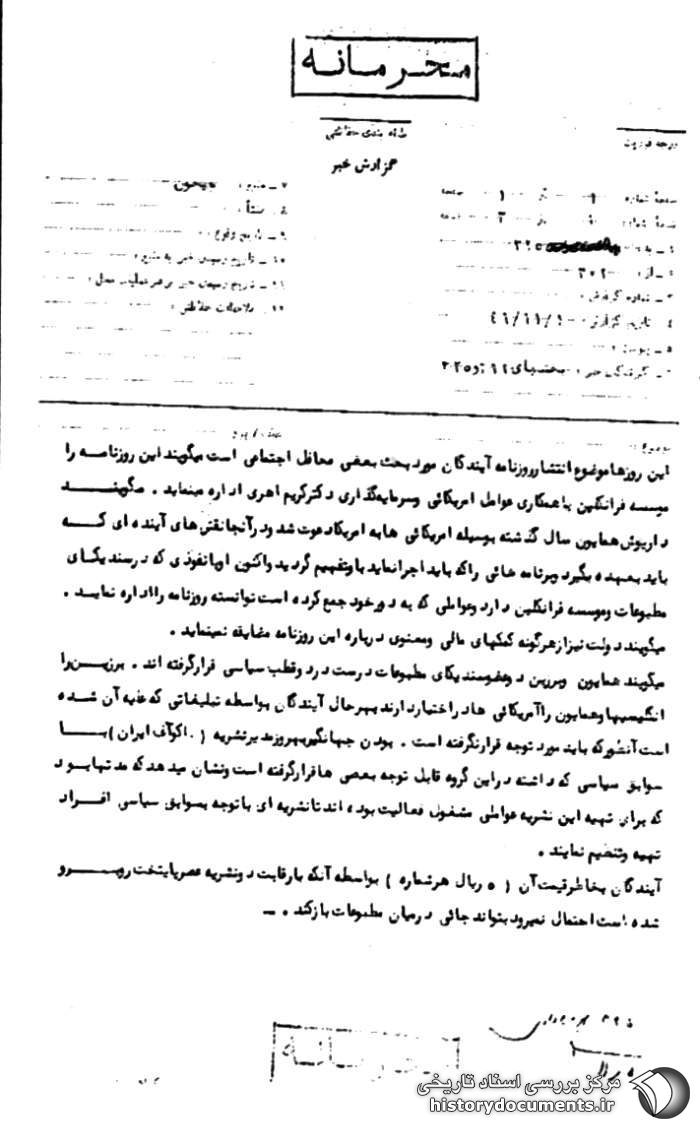 محرمانه
طبقه بندی حفاظتی
درجه فوریت
گزارش خبر
صفحهٔ شماره ۱ از ۱ صفحه
نسخهٔ شماره از ۳ نسخه
۱ ـ به
۲ ـ از : ۳۰۲
۳ ـ شماره گزارش :
۴ ـ تاریخ گزارش : ۴۶/۱۱/۱۰
۵ ـ پیوست :
۶ ـ گیرندگان خبر : بخشهای
۷ ـ منبع : جیحون
۸ ـ منشأ :
۹ ـ تاریخ وقوع :
۱۰ ـ تاریخ رسیدن خبر به منبع :
۱۱ ـ تاریخ رسیدن خبر به رهبر عملیات محل :
۱۲ ـ ملاحظات حفاظتی :
موضوع :
این روزها موضوع انتشار روزنامه آیندگان مورد بحث بعضی محافل اجتماعی است میگویند این روزنامه را
موسسه فرانکلین با همکاری عوامل امریکائی وسرمایه‌گذاری دکترکریم اهری اداره مینماید . میگویند
داریوش همایون سال گذشته بوسیله امریکائی ها به امریکا دعوت شد ودرآنجا نقش های آینده ای که
باید بعهده بگیرد وبرنامه هائی راکه باید اجرا نماید باو تفهیم گردید واکنون او با نفوذی که درسندیکای
مطبوعات وموسسه فرانکلین دارد وعواملی که به دور خود جمع کرده است توانسته روزنامه را اداره نماید .
میگویند دولت نیز از هرگونه کمکهای مالی ومعنوی درباره این روزنامه مضایقه نمینماید .
میگویند همایون وبرزین دوعضو سندیکای مطبوعات درست در دو قطب سیاسی قرارگرفته اند . برزین را
انگلیسیها وهمایون را آمریکائی ها در اختیار دارند بهرحال آیندگان بواسطه تبلیغاتی که علیه آن شده
است آنطورکه باید مورد توجه قرارنگرفته است . بودن جهانگیر بهروز مدیر نشریه ( اکوآف ایران ) با
سوابق سیاسی که داشته در این گروه قابل توجه بعضی ها قرارگرفته است ونشان میدهد که مدتها بود
که برای تهیه این نشریه عواملی مشغول فعالیت بوده اند تا نشریه ای با توجه بسوابق سیاسی افراد
تهیه وتنظیم نمایند .
آیندگان بخاطر قیمت آن ( ۵ ریال هرشماره ) بواسطه آنکه با رقابت دو نشریه عصر پایتخت روبرو
شده است احتمال نمیرود بتواند جائی درمیان مطبوعات بازکند . ـ
محرمانه
مرکز بررسی اسناد تاریخی
historydocuments.ir